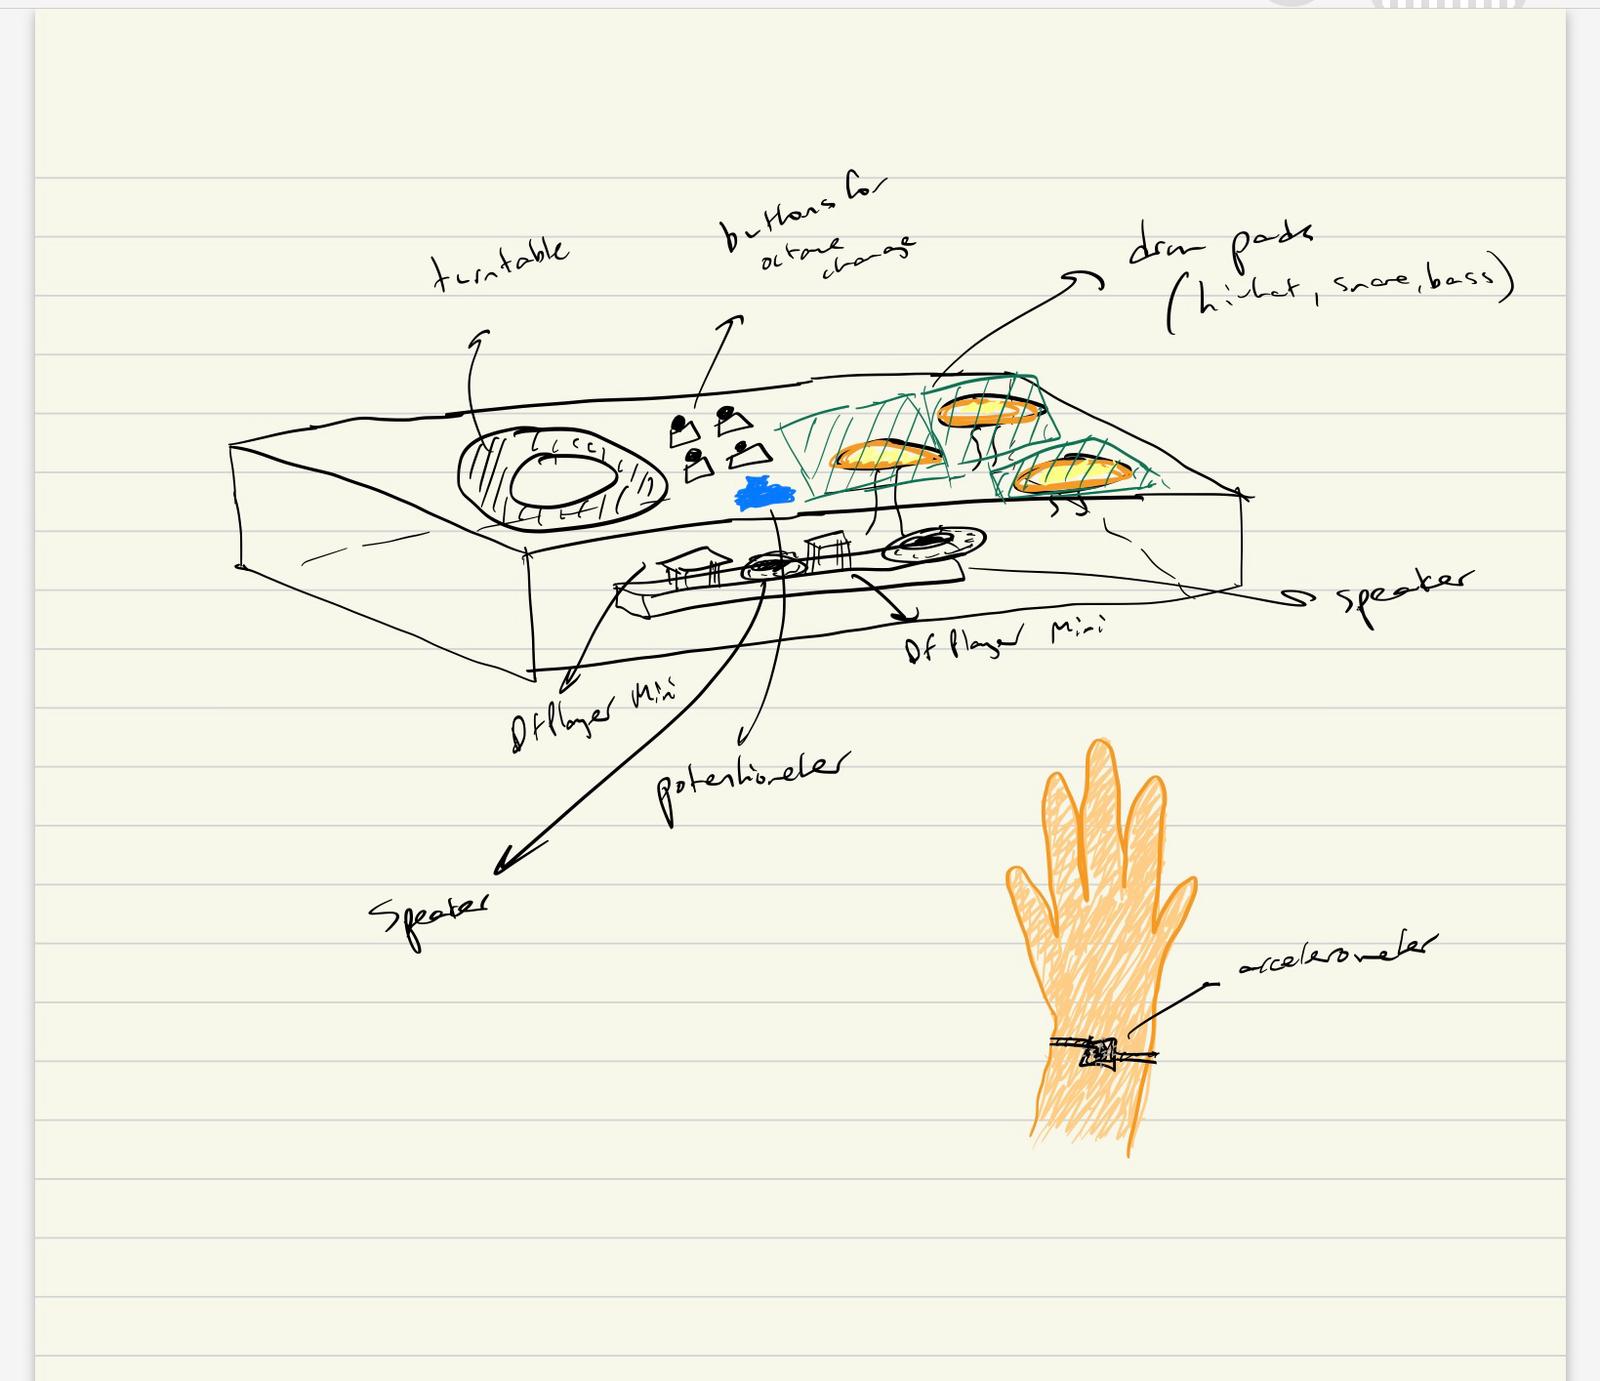 turntable
buttons for
octave
change
drum pads
(hi-hat, snare, bass)
speaker
Df Player Mini
DfPlayer Mini
potentiometer
Speaker
accelerometer